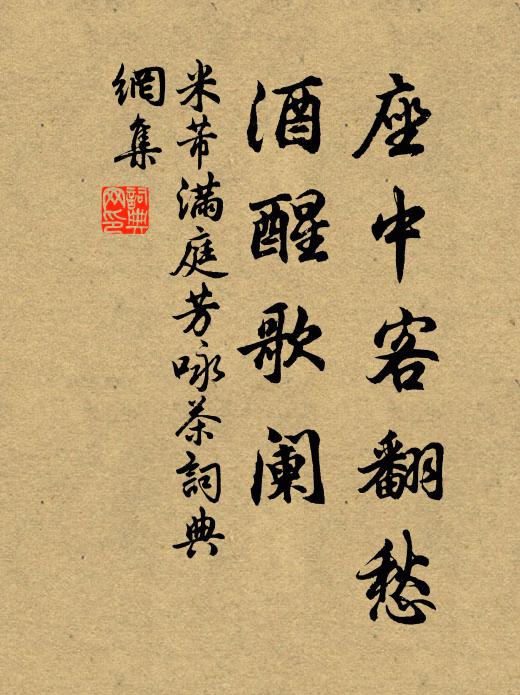 座中客翻愁
酒醒歌阑
米芾满庭芳咏茶詞典
網集
詞典
网印